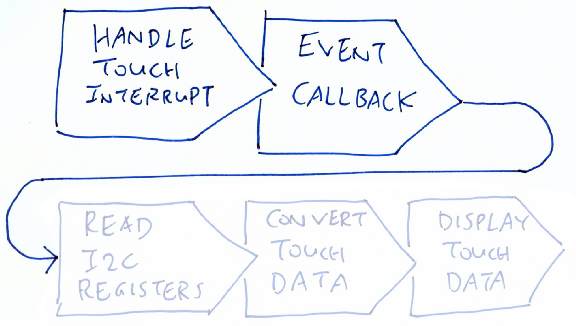 HANDLE
TOUCH
INTERRUPT
EVENT
CALLBACK
READ
I2C
REGISTERS
CONVERT
TOUCH
DATA
DISPLAY
TOUCH
DATA